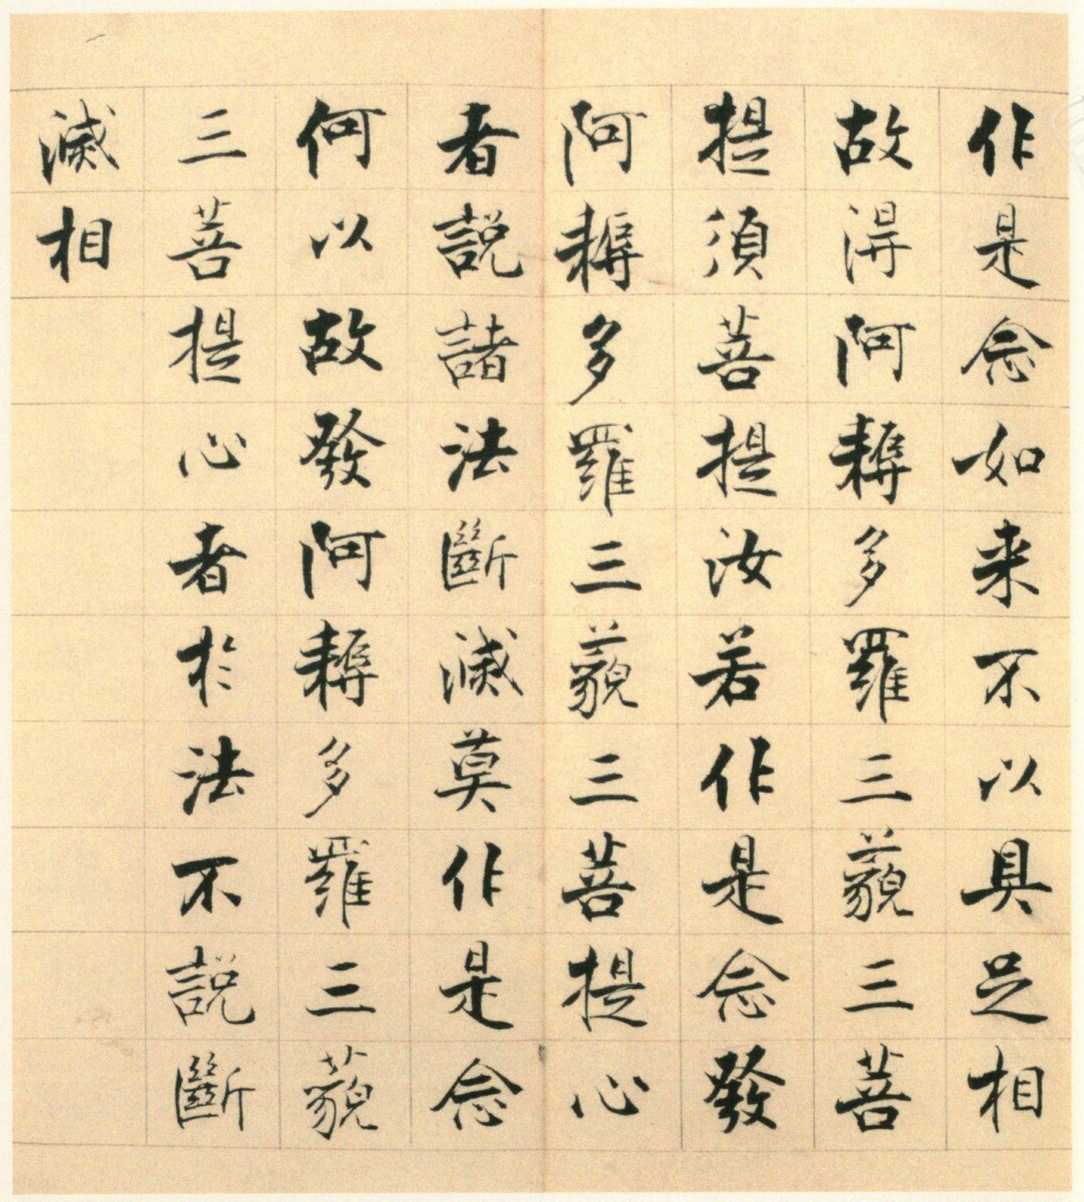 作是念如来不以具足相
故得阿耨多羅三藐三菩
提須菩提汝若作是念發
阿耨多羅三藐三菩提心
者説諸法斷滅莫作是念
何以故發阿耨多羅三藐
三菩提心者於法不説斷
滅相